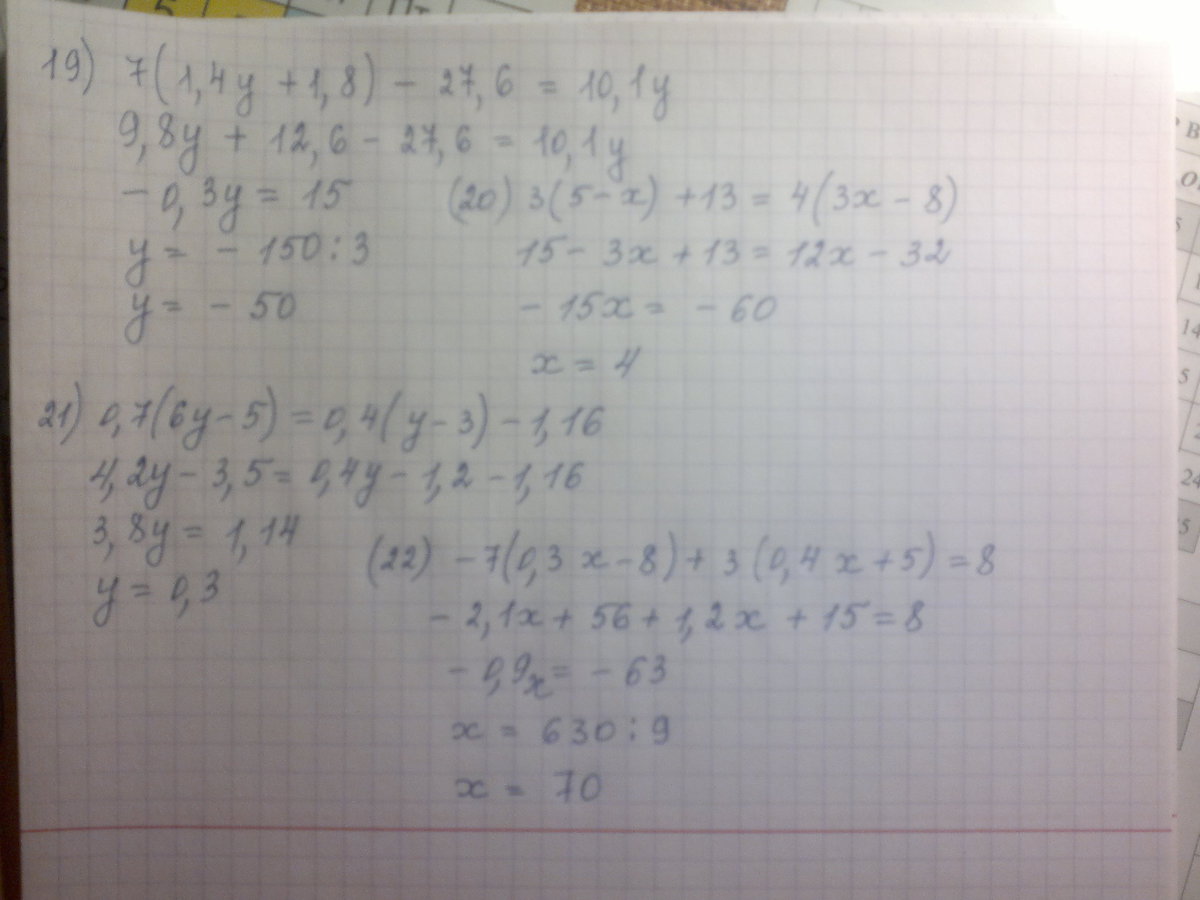 19) 7(1,4y + 1,8) - 27,6 = 10,1y
9,8y + 12,6 - 27,6 = 10,1y
- 0,3y = 15
y = - 150 : 3
y = - 50
(20) 3(5-x) + 13 = 4(3x - 8)
15 - 3x + 13 = 12x - 32
- 15x = - 60
x = 4
21) 0,7(6y - 5) = 0,4(y - 3) - 1,16
4,2y - 3,5 = 0,4y - 1,2 - 1,16
3,8y = 1,14
y = 0,3
(22) -7(0,3x - 8) + 3(0,4x + 5) = 8
- 2,1x + 56 + 1,2x + 15 = 8
- 0,9x = - 63
x = 630 : 9
x = 70
14
5
24
5